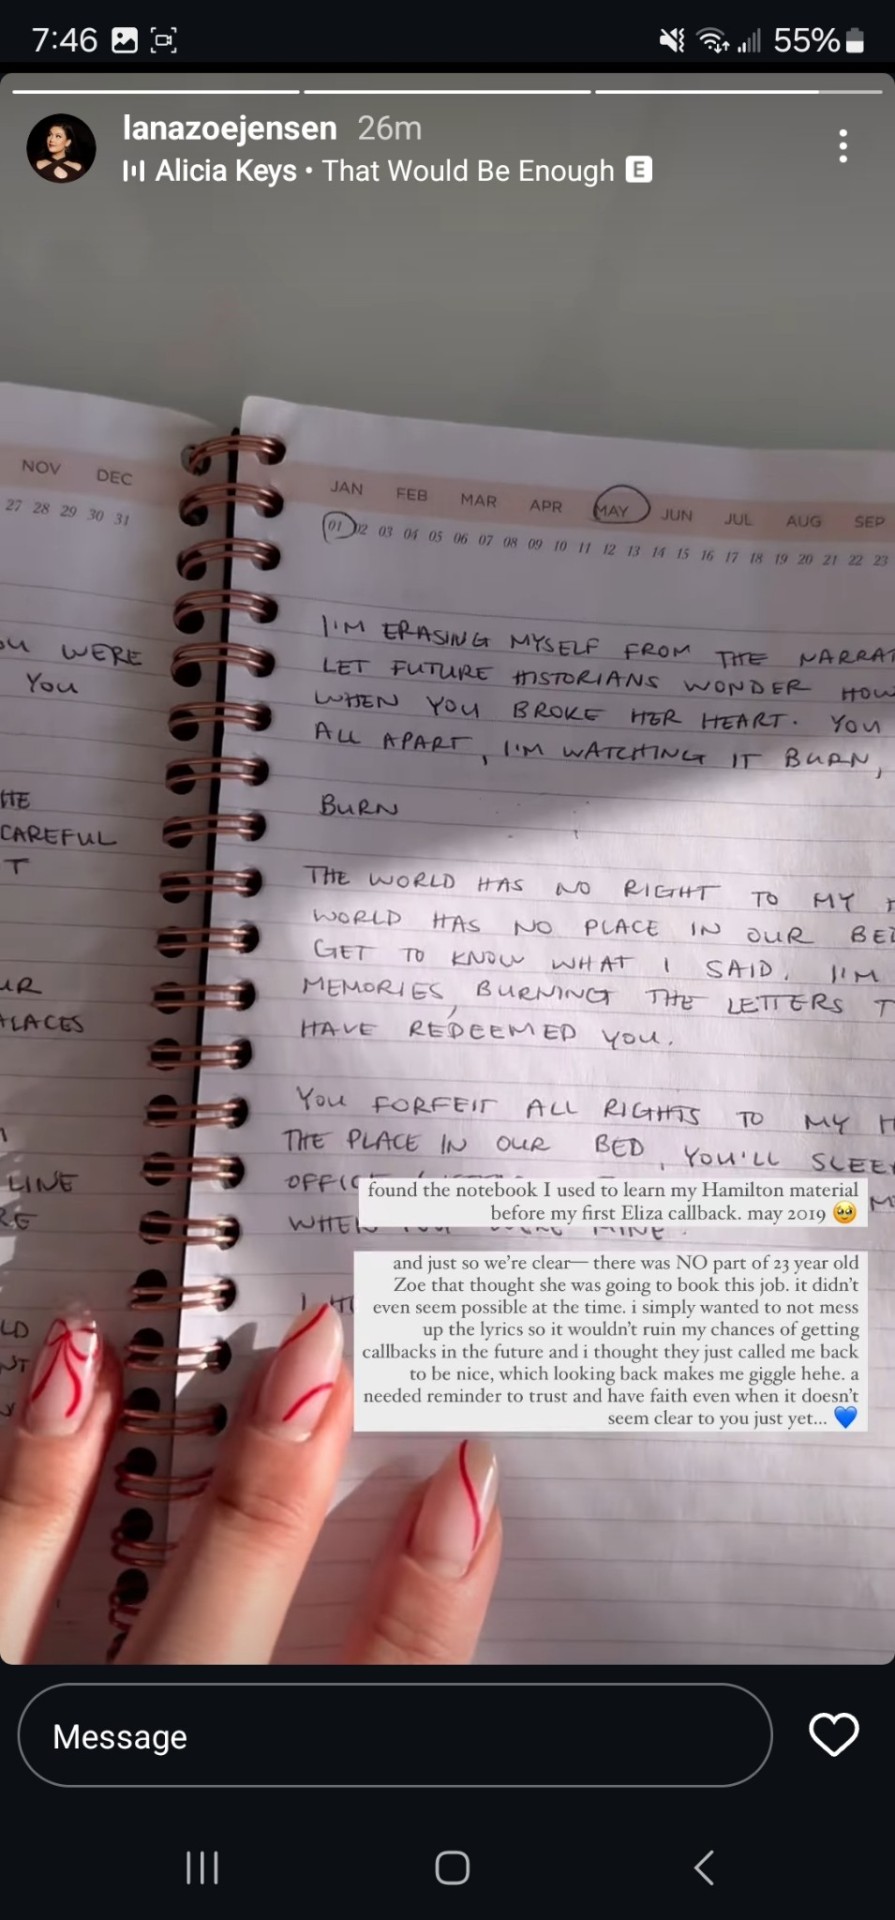 7:46 55%
lanazoejensen 26m
Alicia Keys • That Would Be Enough E
NOV DEC
27 28 29 30 31
JAN FEB MAR APR MAY JUN JUL AUG SEP
01 02 03 04 05 06 07 08 09 10 11 12 13 14 15 16 17 18 19 20 21 22 23
WERE
YOU
CAREFUL
T
LINE
I'M ERASING MYSELF FROM THE
LET FUTURE HISTORIANS WONDER HOW
WHEN YOU BROKE HER HEART. YOU
ALL APART, I'M WATCHING IT BURN,
BURN
THE WORLD HAS NO RIGHT TO MY
WORLD HAS NO PLACE IN OUR
GET TO KNOW WHAT I SAID. I'M
MEMORIES, BURNING THE LETTERS
HAVE REDEEMED YOU.
YOU FORFEIT ALL RIGHTS TO MY
THE PLACE IN OUR BED, YOU'LL
found the notebook I used to learn my Hamilton material
before my first Eliza callback. may 2019 🥹
and just so we're clear— there was NO part of 23 year old
Zoe that thought she was going to book this job. it didn't
even seem possible at the time. i simply wanted to not mess
up the lyrics so it wouldn't ruin my chances of getting
callbacks in the future and i thought they just called me back
to be nice, which looking back makes me giggle hehe. a
needed reminder to trust and have faith even when it doesn't
seem clear to you just yet... 💙
Message